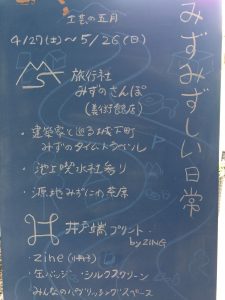 みずみずしい日常
工芸の五月
4/27(土)〜5/26(日)
旅行社
みずのさんぽ
(美術館店)
・建築家と巡る城下町
みずのタイムトラベル
・池上喫水社参り
・源池みずにわ茶席
井戸端プリント
by ZING
・zine(冊子)
・缶バッジ・シルクスクリーン
みんなのパブリッシングスペース